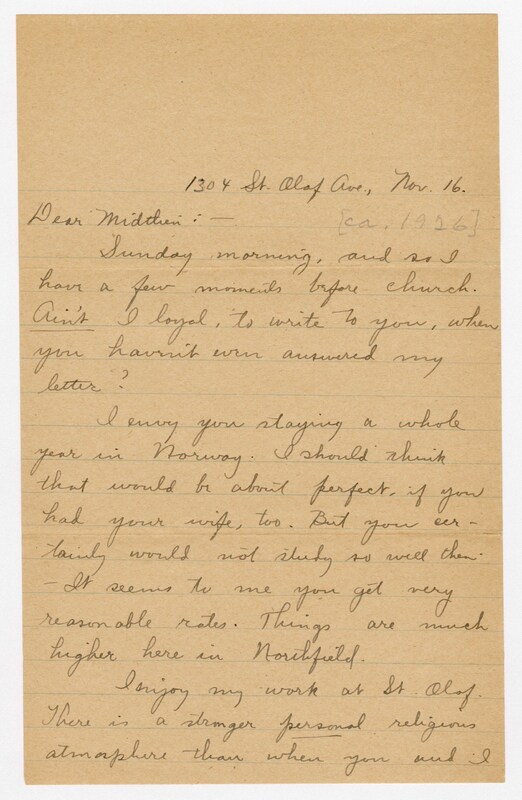 1304 St. Olaf Ave., Nov. 16.
Dear Midthen:—
[ca. 1926]
Sunday morning, and so I
have a few moments before church.
Ain't I loyal, to write to you, when
you haven't even answered my
letter?
I envy you staying a whole
year in Norway. I should think
that would be about perfect, if you
had your wife, too. But you cer-
tainly would not study so well then.
- It seems to me you get very
reasonable rates. Things are much
higher here in Northfield.
I enjoy my work at St. Olaf.
There is a stronger personal religious
atmosphere than when you and I